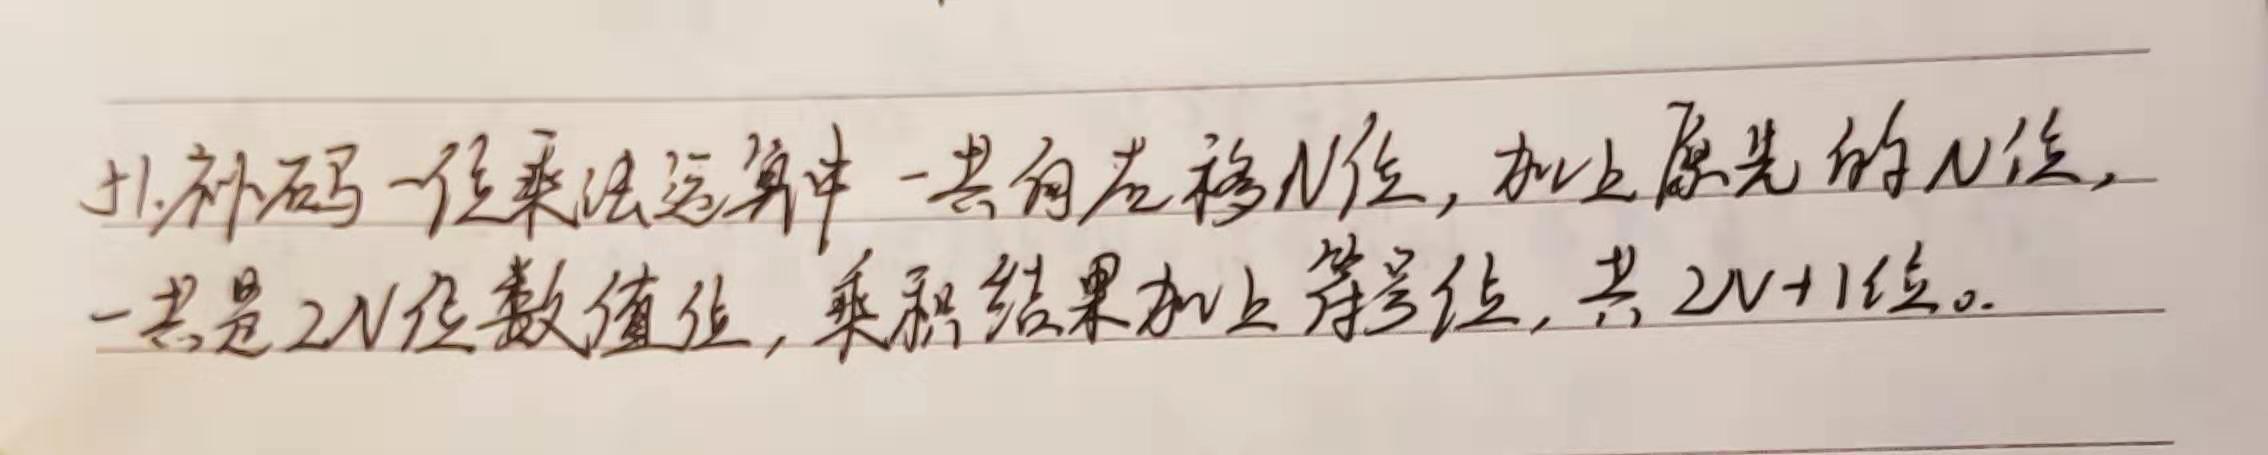 51.补码一位乘法运算中一共向右移N位,加上原先的N位,
一共是2N位数值位,乘积结果加上符号位,共2N+1位。